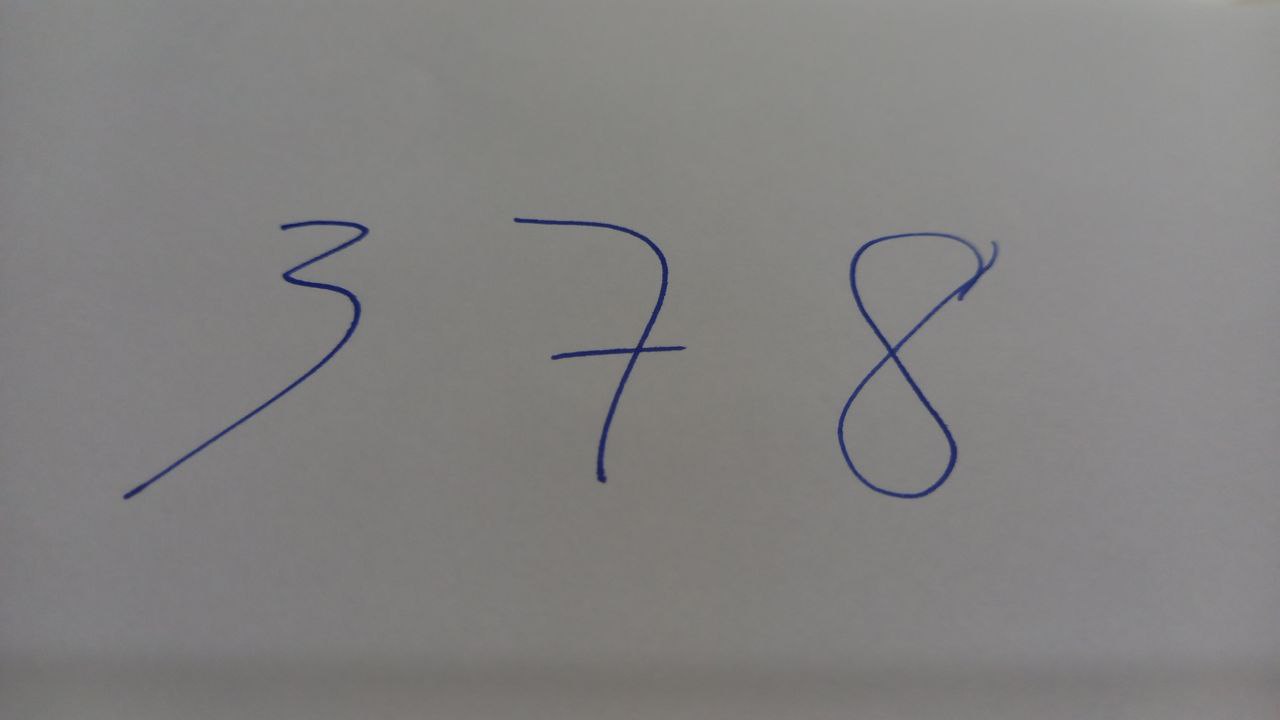 3 7 8